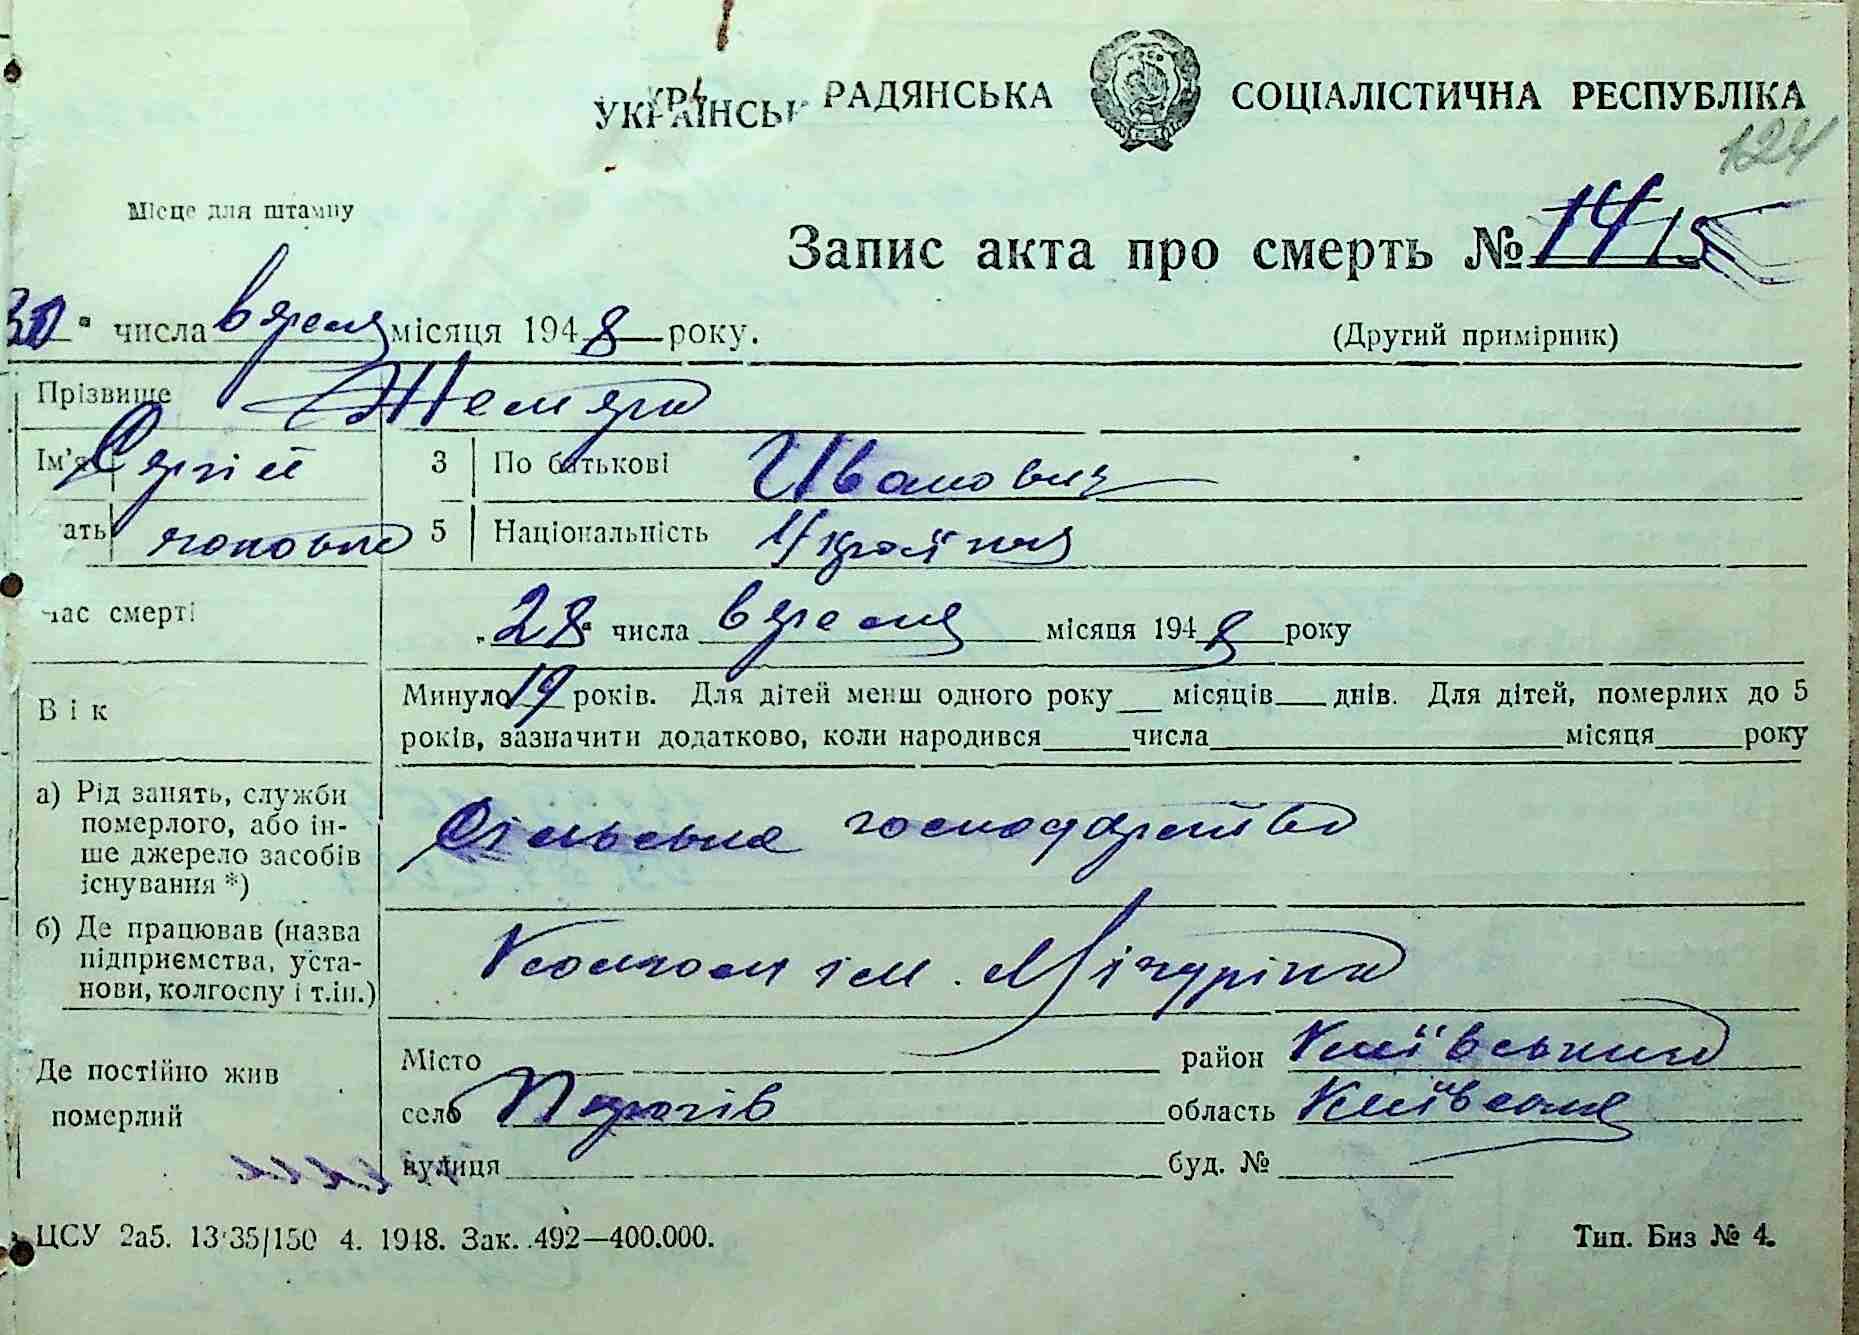 УКРАЇНСЬК РАДЯНСЬКА СОЦІАЛІСТИЧНА РЕСПУБЛІКА
124
Місце для штампу
Запис акта про смерть № 14 15
30 числа вересня місяця 1948 року.
(Другий примірник)
Прізвище
Ім'я Сергій 3 По батькові Иванович
ать чоловіча 5 Національність Українця
час смерті
„28“ числа вересня місяця 1948 року
Вік
Минуло 19 років. Для дітей менш одного року ___ місяців ___ днів. Для дітей, померлих до 5
років, зазначити додатково, коли народився ___ числа ___ місяця ___ року
а) Рід занять, служби
померлого, або ін-
ше джерело засобів
існування *)
Сільське господарство
б) Де працював (назва
підприємства, уста-
нови, колгоспу і т.ін.)
Колгосп ім. Мічуріна
Де постійно жив
померлий
Місто ___ район Київський
село Пирогів область Київська
вулиця ___ буд. № ___
ЦСУ 2а5. 13 35/150 4. 1948. Зак. 492—400.000.
Тип. Биз № 4.